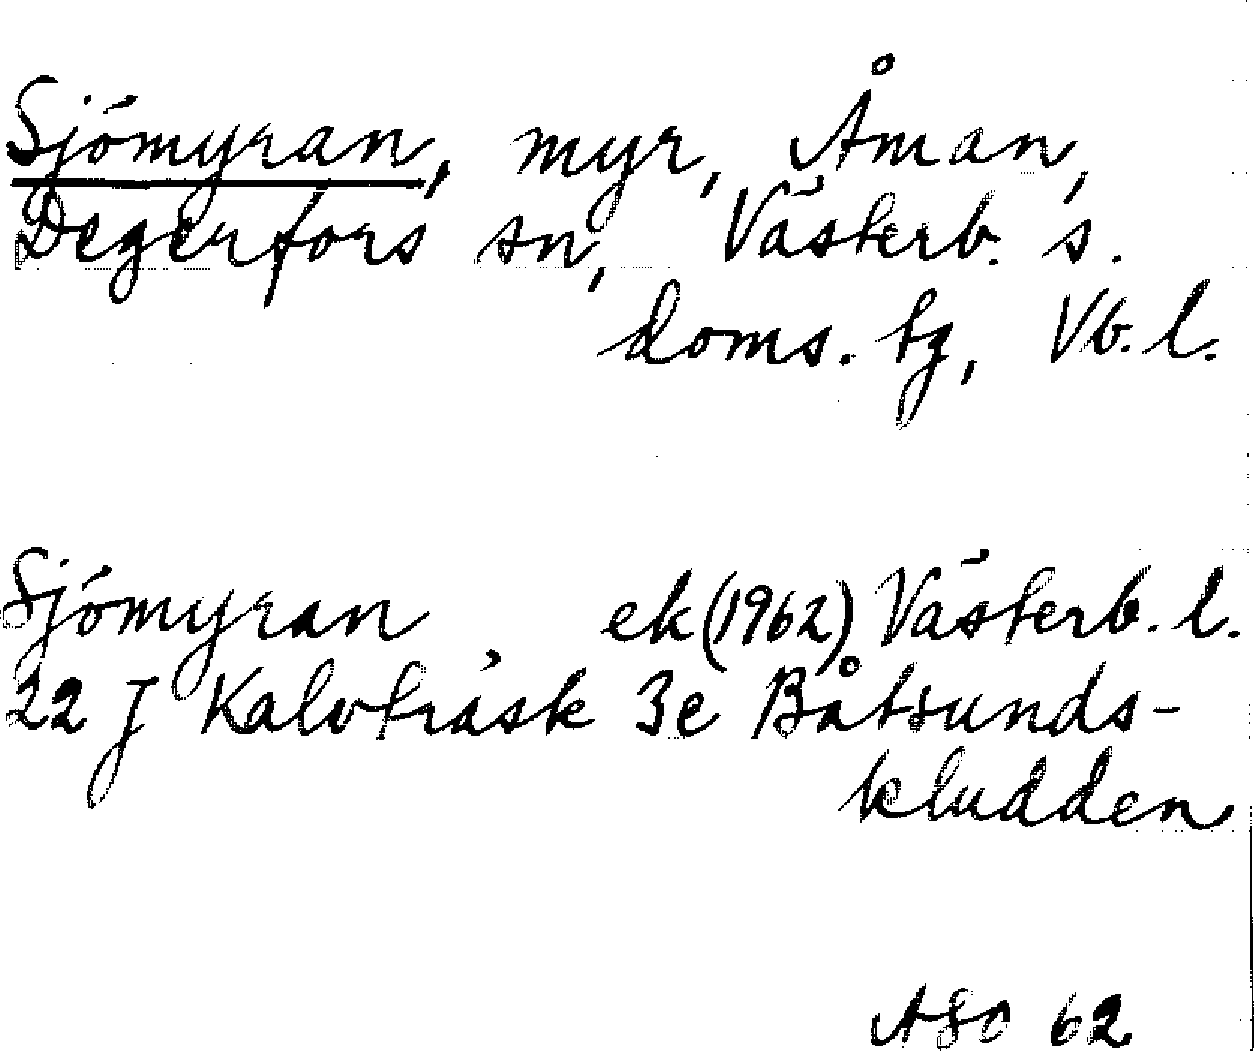 Sjömyran, myr, Åman,
Degerfors sn, Västerb. s.
doms. tg, Vb. l.
Sjömyran ek (1962) Västerb. l.
22 J Kalvträsk 3e Båtsunds-
kludden
ASO 62